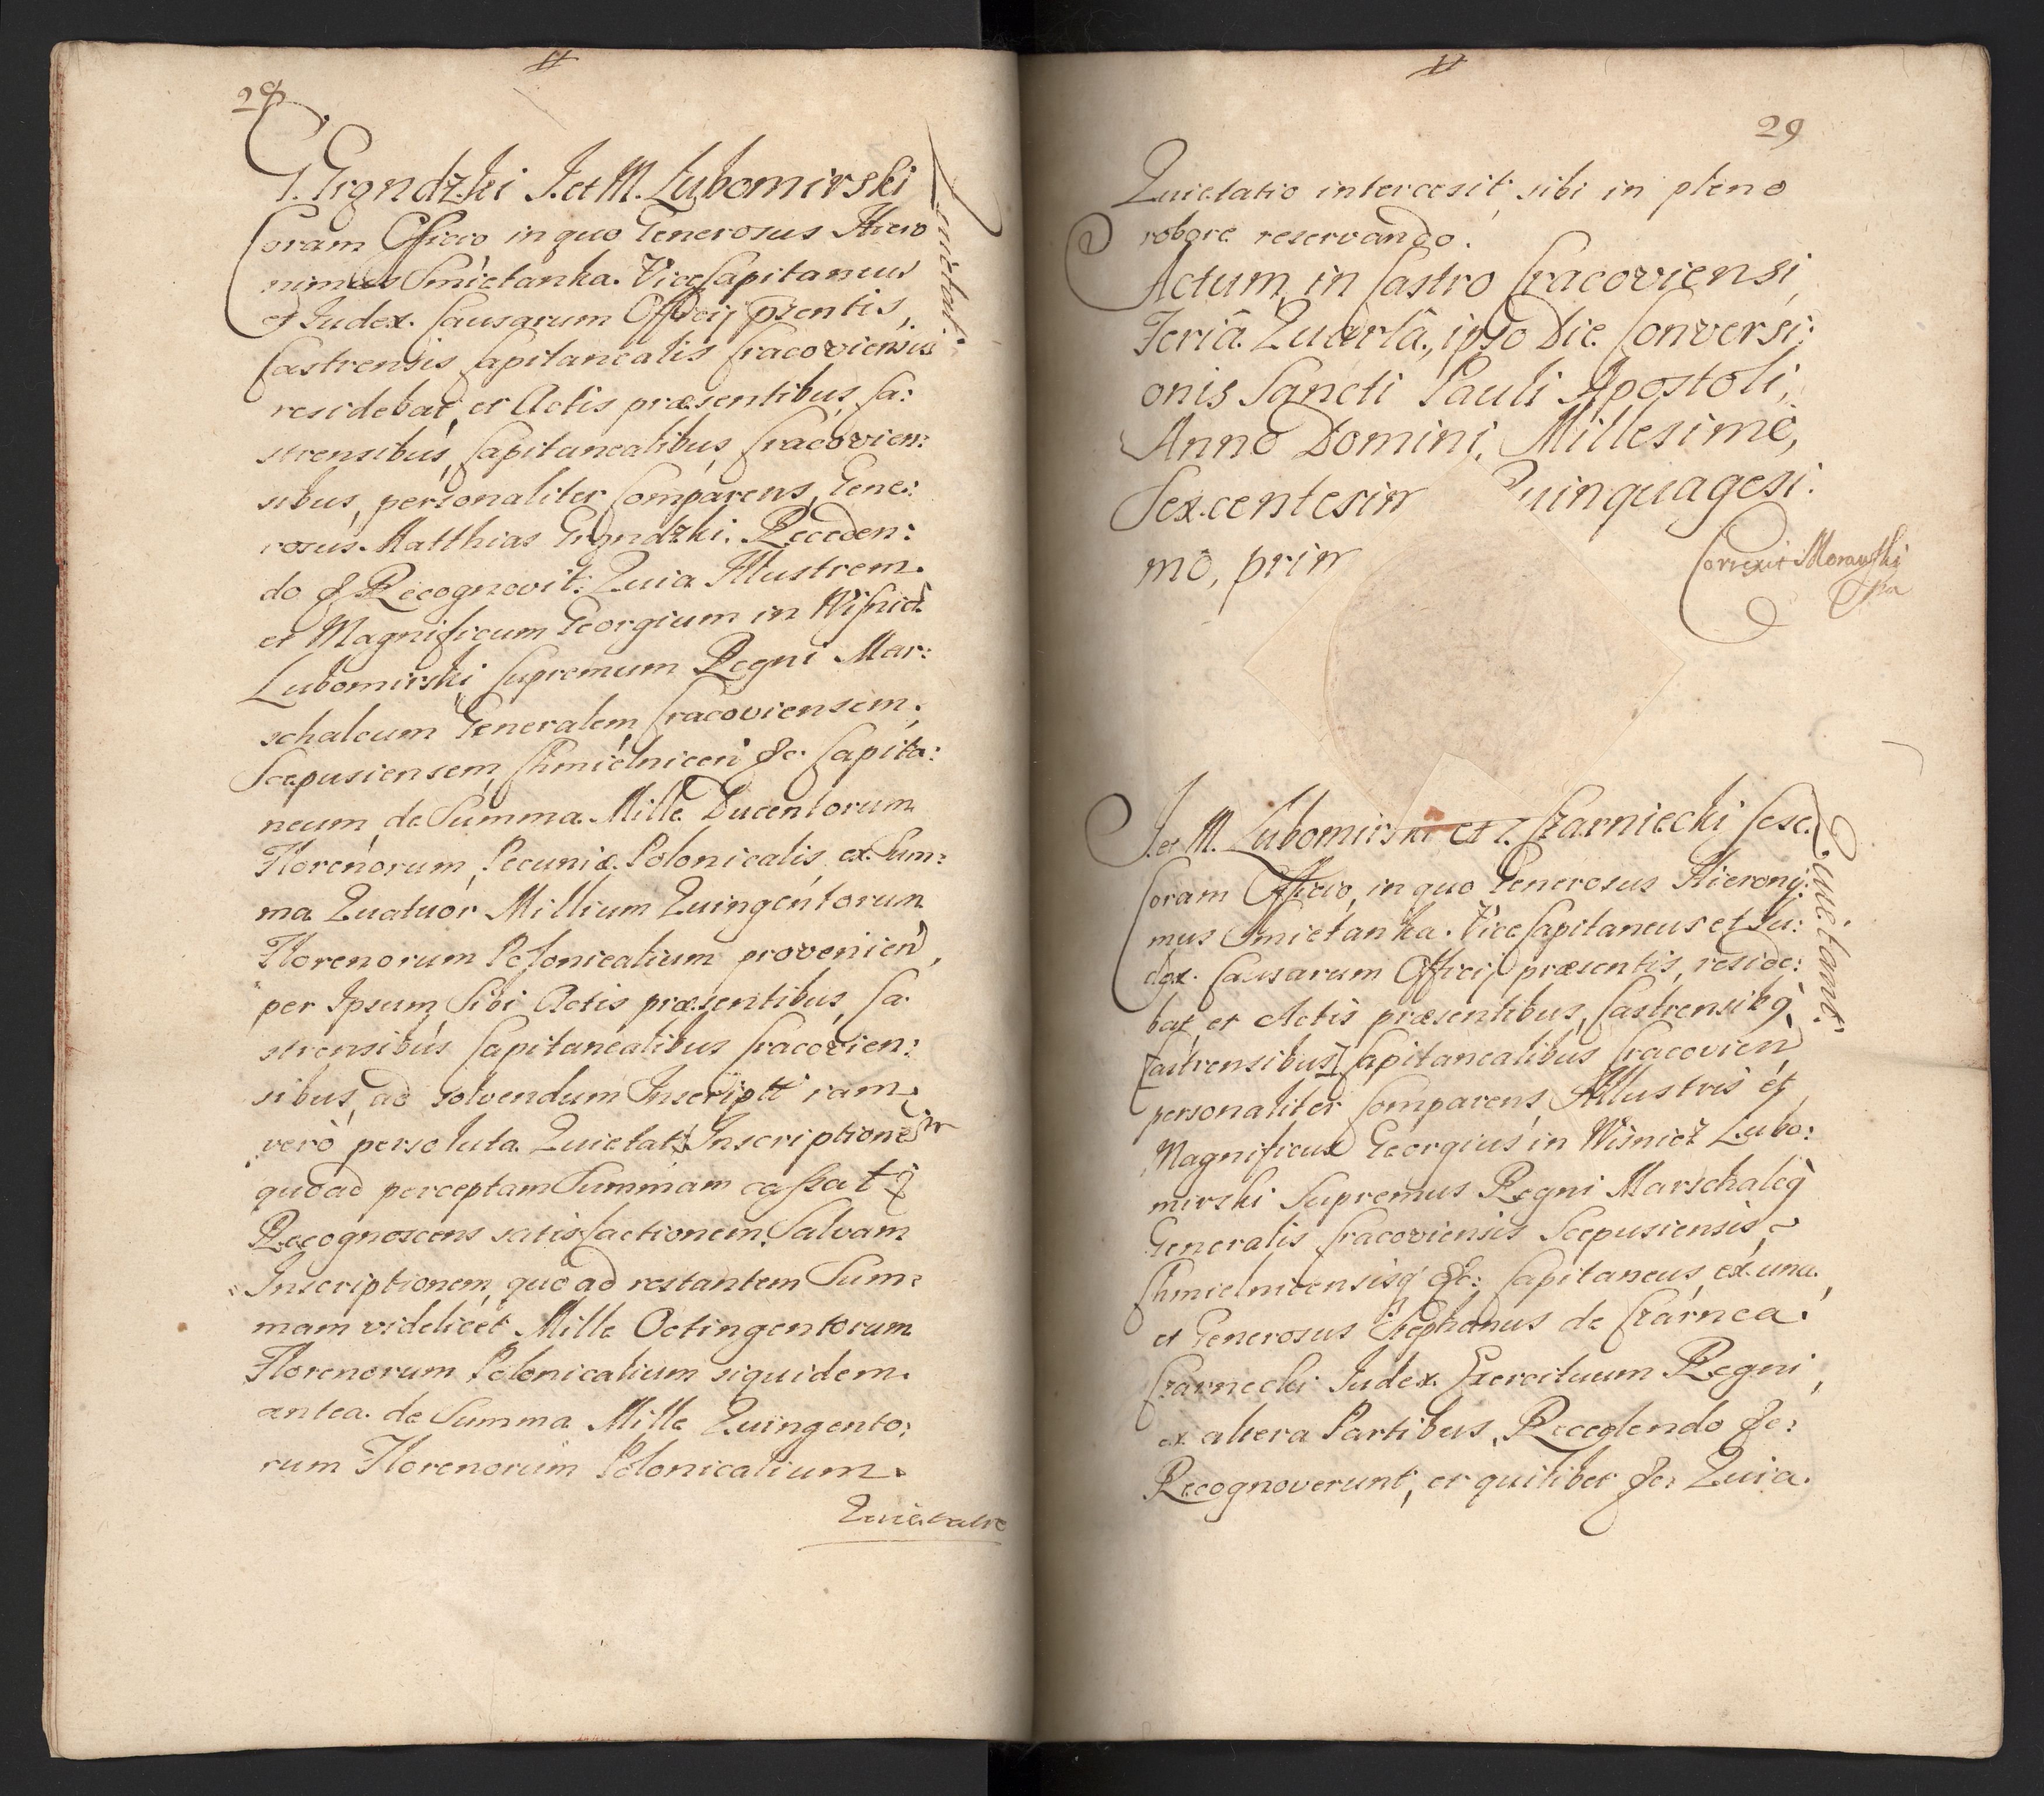 28
G. Grgndzki I. et M. Lubomirski
Quietat:
Coram Officio in quo Generosus Hiero
nimus Smietanka. ViceCapitaneus
et Iudex. Causarum Officij pzentis,
Castrensis Capitanealis Cracoviensis
residebat, et Actis præsentibus, Ca:
strensibus, Capitanealibus, Cracovien:
sibus, personaliter Comparens, Gene:
rosus. Matthias Grgndzki. Receden:
do & Recognovit: Quia Illustrem.
et Magnificum Georgium in Wisnicz
Lubomirski, Supremum Regni Mar:
schalcum Generalem, Cracoviensem,
Scepusiensem, Chmielnicen &c. Capita:
neum, de Summa. Mille Ducentorum
Florenorum, Pecuniæ Polonicalis, ex. Sum:
ma Quatuor Millium Quingentorum
Florenorum Polonicalium provenien,
per Ipsum Sibi Actis præsentibus, Ca:
strensibus Capitanealibus Cracovien:
sibus, ad solvendum Inscriptt iam.
verò persoluta. Quietat, Inscriptionem
quo ad perceptam Summam cassat q
Recognoscens satisfactionem. Salvam
Inscriptionem, quo ad restantem Sum:
mam videlicet Mille Octingentorum
Florenorum Polonicalium siquidem.
antea. de Summa Mille Quingento:
rum Florenorum Polonicalium.
Quietatio
29
Quietatio intercesit, sibi in pleno
robore reservando.
Actum, in Castro Cracoviensi,
Feriâ. Quartâ, ipso Die Conversi:
onis Sancti Pauli Apostoli,
Anno Domini, Millesimo,
Sexcentesim Quinquagesi:
mo, prim
Correxit Morawski
I. et M. Lubomirski et G. Czarniecki sese
Quietant:
Coram Officio, in quo Generosus Hierony:
mus Smietanka. ViceCapitaneus et Iu:
dex. Causarum Officij præsentis, reside:
bat et Actis præsentibus, Castrensibq
[Castrensibus] Capitanealibus Cracovien
personaliter Comparens, Illustris et
Magnificus Georgius in Wisnicz Lubo:
mirski Supremus Regni Marschalcq
Generalis Cracoviensis Scepusiensis
Chmielnicensisq &c: Capitaneus, ex una.
et Generosus Stephanus de Czarnca.
Czarnecki Iudex. Exercituum Regni,
ex altera Partibus, Recedendo &c:
Recognoverunt, et quilibet &c: Quia.